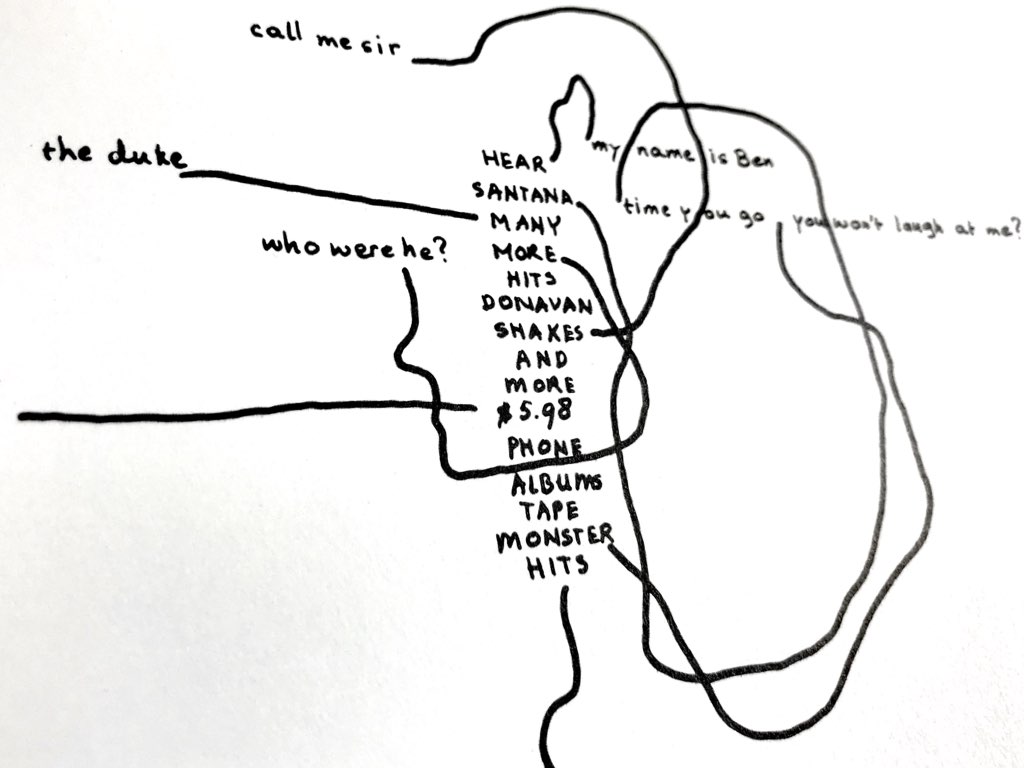 call me sir
the duke
who were he?
HEAR
SANTANA
MANY
MORE
HITS
DONAVAN
SHAKES
AND
MORE
$5.98
PHONE
ALBUMS
TAPE
MONSTER
HITS
my name is Ben
time you go you won't laugh at me?